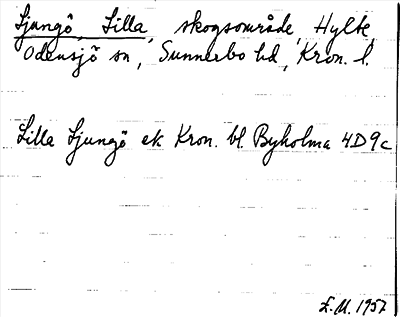 Ljungö, Lilla, skogsområde, Hylte,
Odensjö sn, Sunnerbo hd, Kron. l.
Lilla Ljungö ek Kron. bl. Byholma 4D9c
E.M. 1957